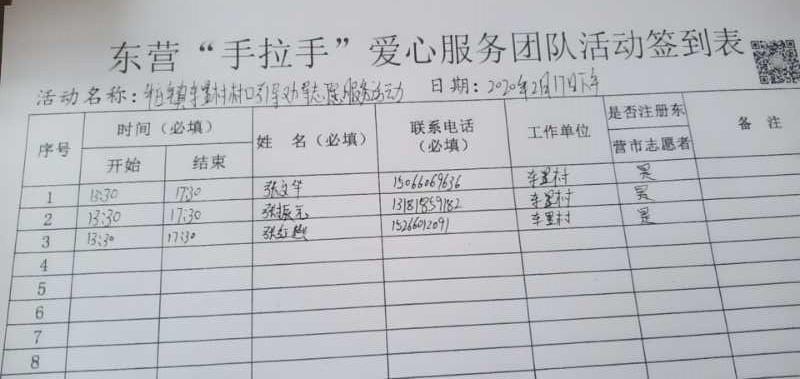 东营“手拉手”爱心服务团队活动签到表
活动名称：牛庄镇车里村村口引导劝导志愿服务活动 日期：2020年2月17日下午
序号 时间（必填） 姓 名（必填） 联系电话（必填） 工作单位 是否注册东营市志愿者 备 注
开始 结束
1 13:30 17:30 张文华 15066069636 车里村 是
2 13:30 17:30 张振元 13181859182 车里村 是
3 13:30 17:30 张红 15266012091 车里村 是
4
5
6
7
8